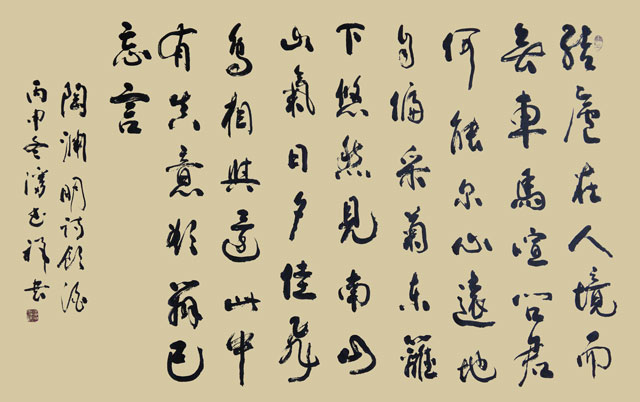 結廬在人境而
無車馬喧問君
何能尔心遠地
自偏采菊東籬
下悠然見南山
山氣日夕佳飛
鳥相與還此中
有真意欲辯已
忘言
陶渊明詩飲酒
丙申冬志祥书